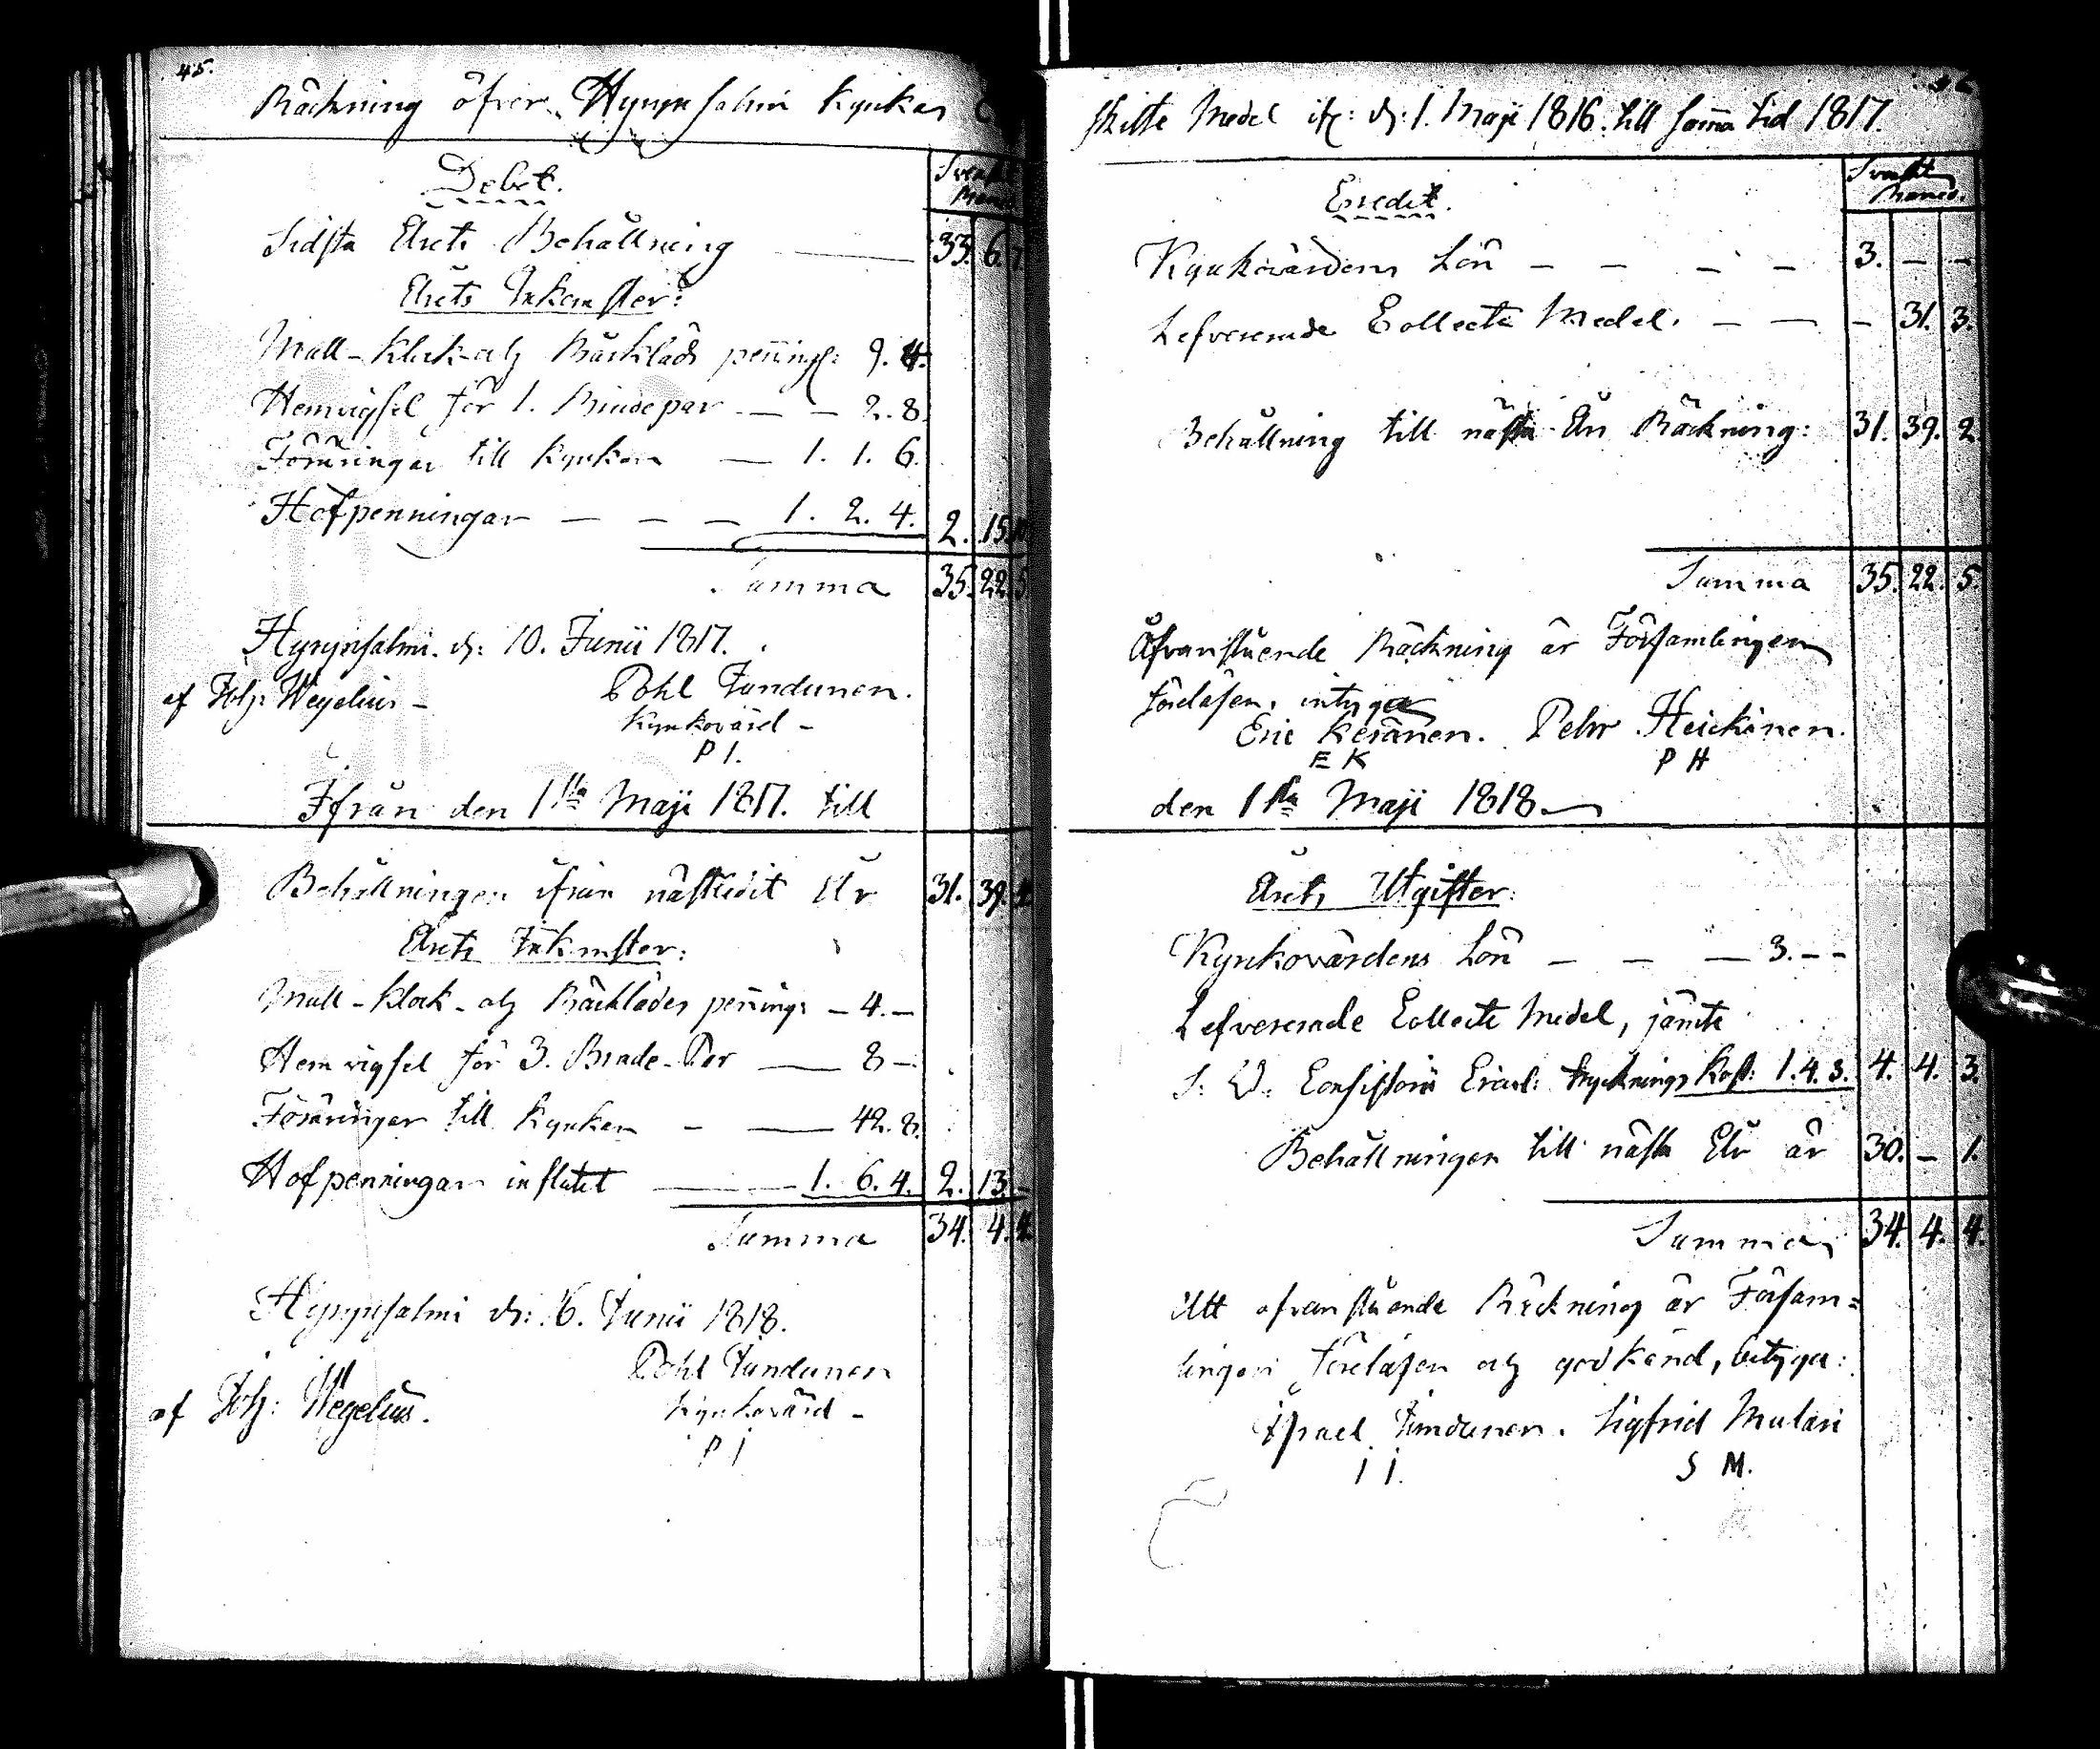 45.
Räckning öfver Hyrynsalmi Kyrkas
Debet.
Svenskt
Mynt.
Sidsta Årets Behållning — 33. 6. 7.
Årets Inkomster:
Mull-Klock- och Bårkläds penning: 9. 4.
Hemvigsel för 1. Brudepar — — 2. 8.
Föräringar till Kyrkan — 1. 1. 6.
Hofpenningar — — — 1. 2. 4. 2. 15. 10.
Summa 35. 22. 5.
Hyrynsalmi d: 10. Junii 1817.
af Joh: Wegelius – Pohl Jundunen.
Kyrkovärd –
P I.
Ifrån den 1sta Maji 1817. till
Behållningen ifrån nästledit År 31. 39. 4.
Årets Inkomster:
Mull-Klock- och Bårklädes pennings – 4. –
Hemvigsel för 3. Brude-Par — 8 –
Föräringar till Kyrkan – — 42. 8.
Hofpenningar influtit — 1. 6. 4. 2. 13. –
Summa 34. 4. 4.
Hyrynsalmi d: 6. Junii 1818.
Pohl Jundunen
af Joh: Wegelius. Kyrkovärd –
P I
skilte Medel ifr: d: 1. Maji 1816. till samma tid 1817.
Credit.
Svenskt
Mynt.
Kyrkovärdens Lön – – – – 3. – –
Lefvererade Collecte Medel. – – – 31. 3.
Behållning till nästa Års Räckning: 31. 39. 2.
Summa 35. 22. 5.
Ofvanstående Räckning är Församlingen
föreläsen, intyga
Eric Keränen. Pehr Heickinen.
E K P H
den 1sta Maji 1818 —
Årets Utgifter:
Kyrkovärdens Lön – – — 3. – –
Lefvererade Collecte Medel, jämte
S: V: Consistorii Circul: trycknings Kost: 1. 4. 3. 4. 4. 3.
Behållningen till nästa År är 30. – 1.
Summa 34. 4. 4.
Att ofvanstående Räckning är Försam=
lingen föreläsen och godkänd, betyga:
Israel Jundunen. Sigfrid Mulari
I I. S M.